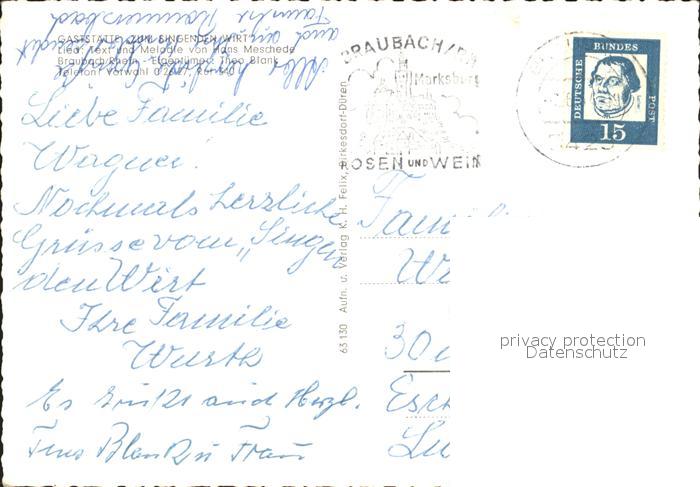 GASTSTÄTTE „ZUM SINGENDEN WIRT"
Lied, Text und Melodie von Hans Meschede
Braubach/Rhein - Eigentümer: Theo Blank
Telefon: Vorwahl 02627, Ruf
Liebe Familie
Wagner!
Nochmals herzliche
Grüsse vom „Singen
den Wirt
Ihre Familie
Wurth
Es grüßt auch Herzl.
Blank u Frau
63 130 Aufn. u. Verlag K. H. Felix, Birkesdorf-Düren
BRAUBACH/RH
Marksburg
ROSEN UND WEIN
DEUTSCHE BUNDES POST
15
Fam
Esch
privacy protection
Datenschutz